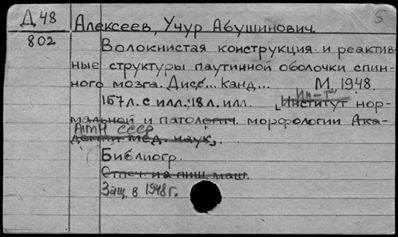 Д 48
Алексеев, Учур Абушинович.
5
802
Волокнистая конструкция и реактив-
ные структуры паутинной оболочки спин-
ного мозга. Дисс... канд... М, 1948.
157л. с илл.; 18л. илл. Ин-т
Институт нор-
мальной и патологич. морфологии Ака-
АМН СССР
демии мед. наук.
Библиогр.
Отпеч. на пиш. маш.
Защ. в 1948г.